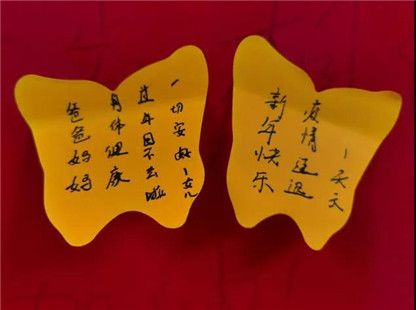 爸爸妈妈
身体健康
过年回不去啦
一切安好-女儿
新年快乐
疫情退
-天文